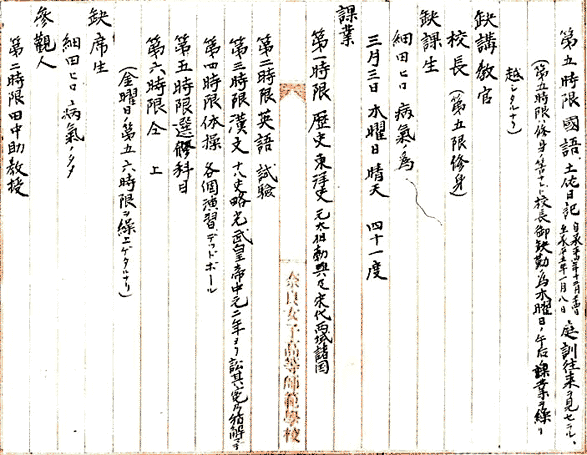 第五時限 國語 土佐日記 自承平四年十二月廿一日 至承平五年一月八日 庭訓往来ヲ見セラル
(第五時限ハ修身ノ筈ナレド校長御缺勤ノ為水曜日ノ午后ノ課業ヲ繰リ
越シタルナリ)
缺講教官
校長(第五限修身)
缺課生
細田ヒロ 病氣ノ為
三月三日 水曜日 晴天 四十一度
課業
第一時限 歴史 東洋史 元太祖勃興及宋代西域諸国
第二時限 英語 試驗
第三時限 漢文 十八史略 光武皇帝中元二年ヨリ
第四時限 体操 各個演習、デッドボール
第五時限 選修科目
第六時限 仝 上
(金曜日ノ第五六時限ヲ繰上ゲタルナリ)
缺席生
細田ヒロ 病氣ノタメ
參觀人
第二時限 田中助教授
六
奈良女子高等師範學校